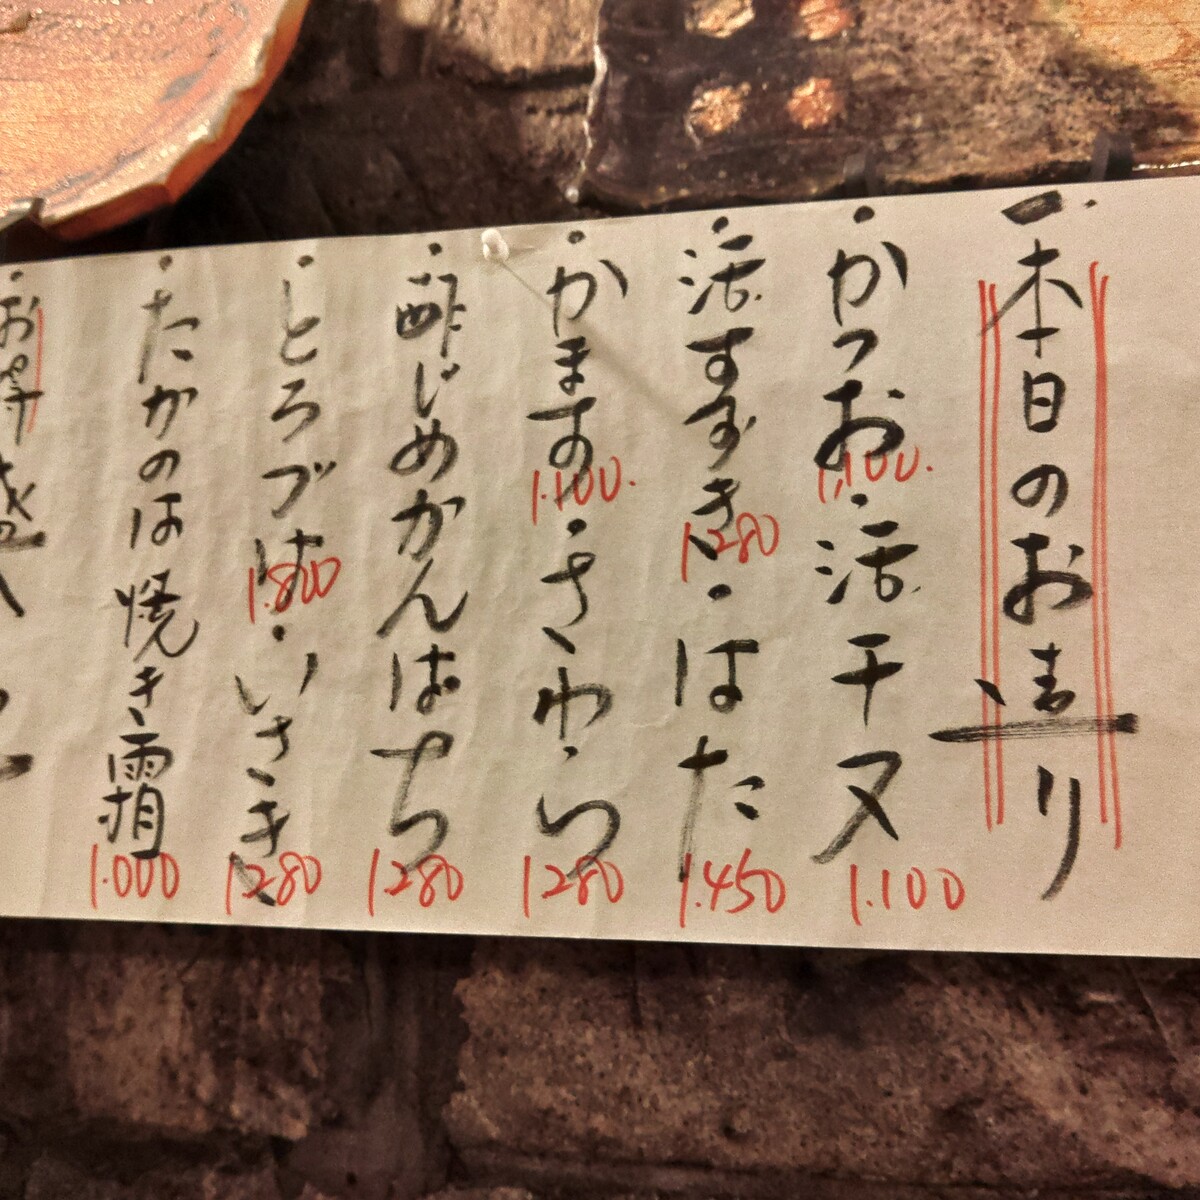 一本日のお造り
・かつお 1,100. ・活チヌ 1.100
・活すずき 1280 ・はた 1.450
・かます 1.100. ・さわら 1280
・酢じめかんぱち 1280
1.800 ・いさき 1280
・たかのは焼き霜 1.000
・お得盛